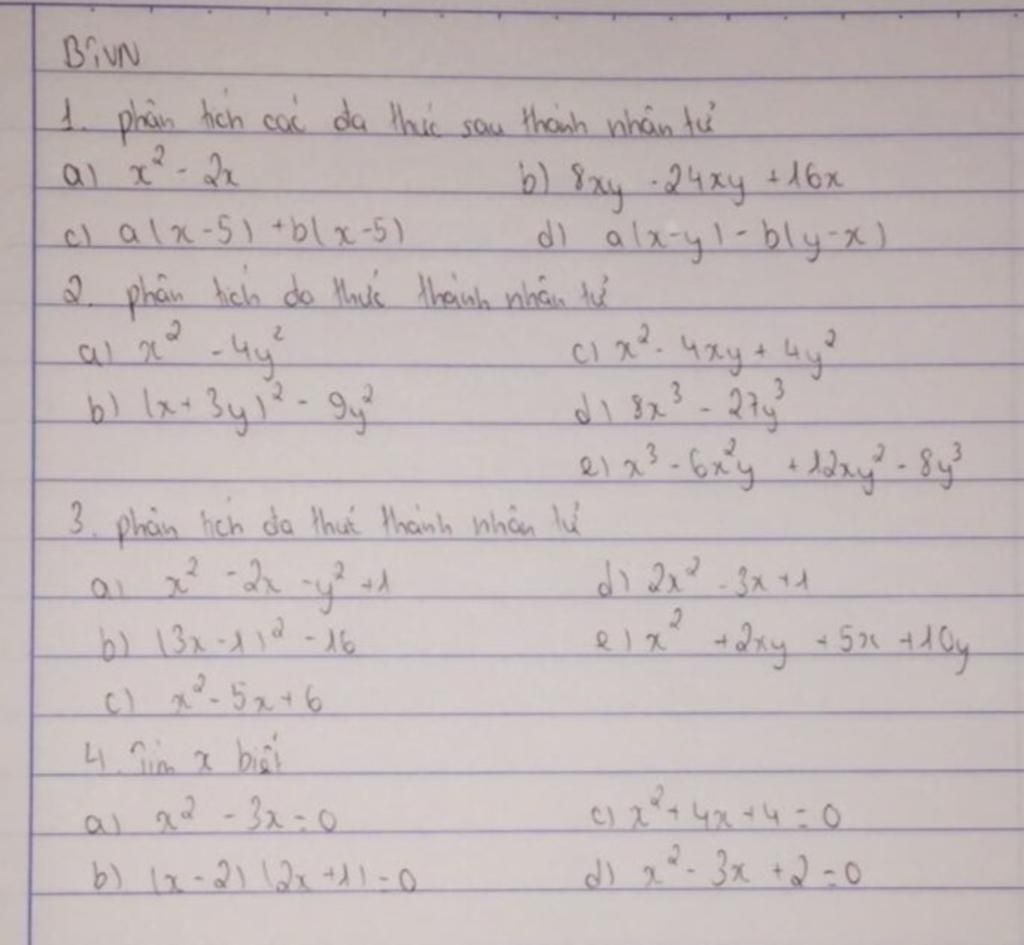 BTVN
1. phân tích các đa thức sau thành nhân tử
a) x² - 2x b) 8xy - 24xy + 16x
c) a(x-5) + b(x-5) d) a(x-y) - b(y-x)
2. phân tích đa thức thành nhân tử
a) x² - 4y² c) x² - 4xy + 4y²
b) (x + 3y)² - 9y² d) 8x³ - 27y³
e) x³ - 6x²y + 12xy² - 8y³
3. phân tích đa thức thành nhân tử
a) x² - 2x - y² + 1 d) 2x² - 3x + 1
b) (3x - 1)² - 16 e) x² + 2xy + 5x + 10y
c) x² - 5x + 6
4. Tìm x biết
a) x² - 3x = 0 c) x² + 4x + 4 = 0
b) (x - 2)(2x + 1) = 0 d) x² - 3x + 2 = 0